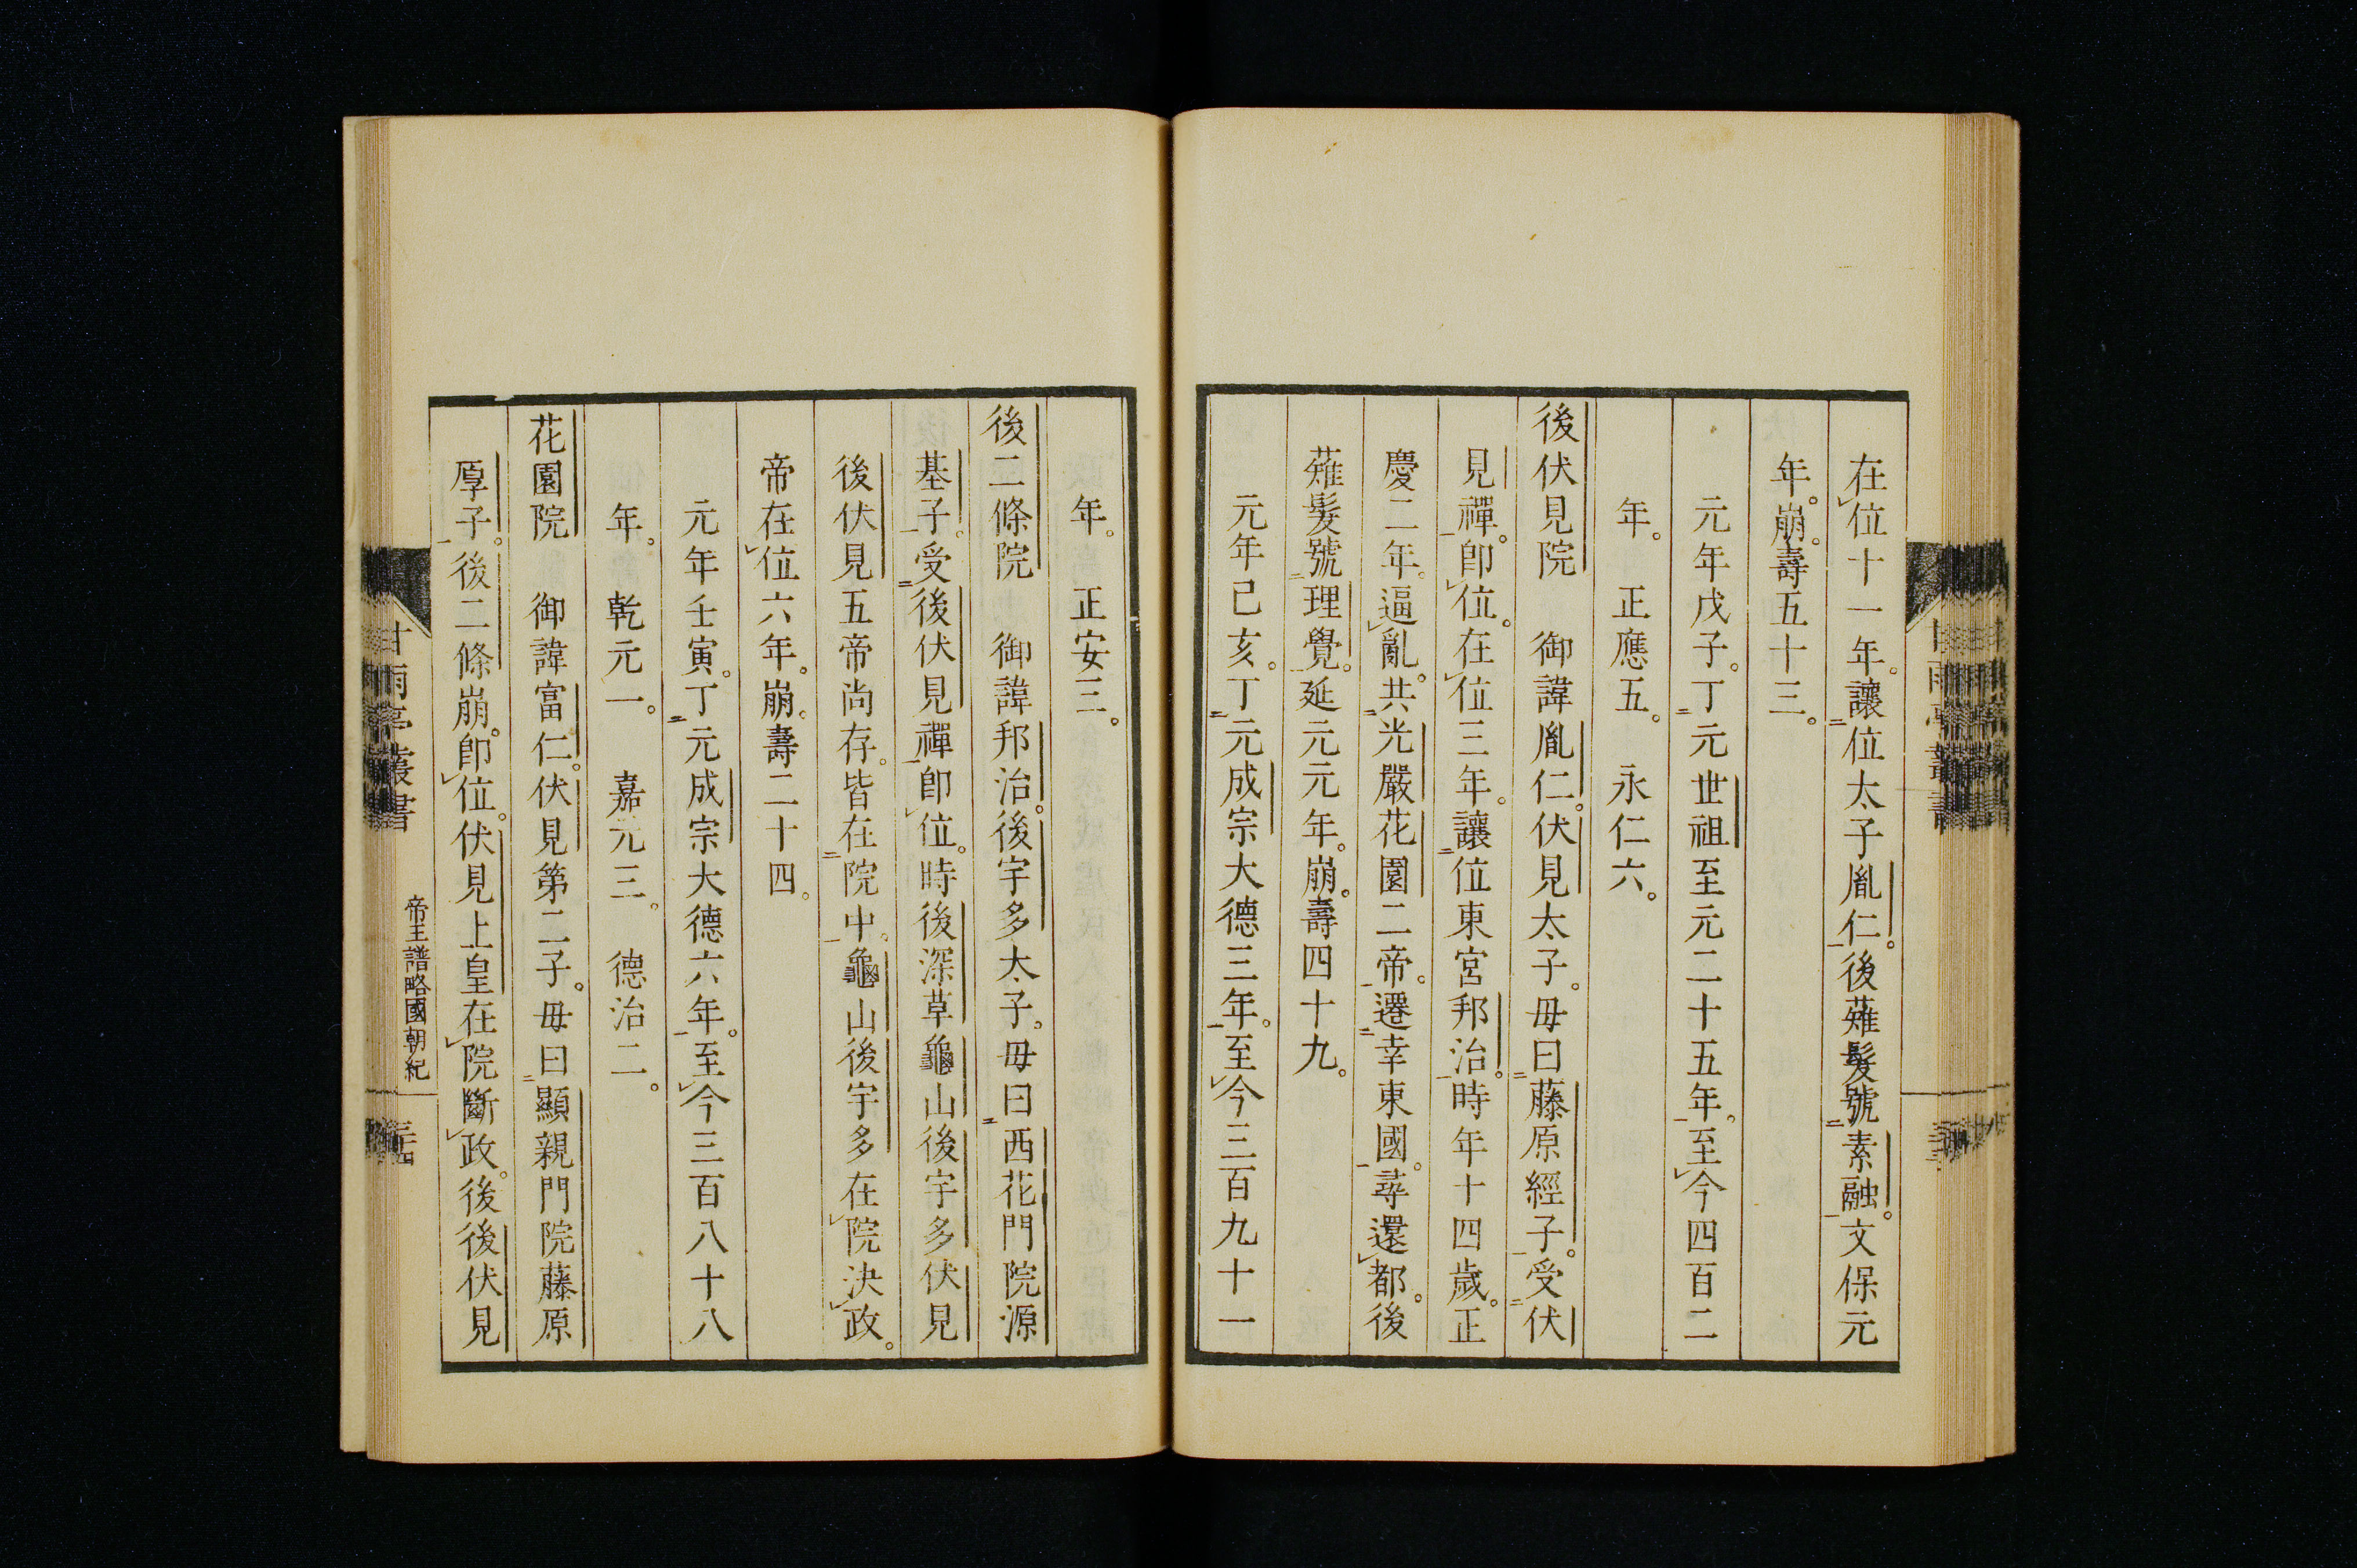 在位十一年。讓位太子胤仁。後薙髮號素融。文保元
年。崩。壽五十三。
元年戊子。丁元世祖至元二十五年。至今四百二
年。 正應五。 永仁六。
後伏見院 御諱胤仁。伏見太子。毋曰藤原經子。受伏
見禪。卽位。在位三年。讓位東宮邦治。時年十四歲。正
慶二年。逼亂。共光嚴花園二帝。遷幸東國。尋還都。後
薙髮號理覺。延元元年。崩。壽四十九。
元年己亥。丁元成宗大德三年。至今三百九十一
年。 正安三。
後二條院 御諱邦治。後宇多太子。毋曰西花門院源
基子。受後伏見禪卽位。時後深草龜山後宇多伏見
後伏見五帝尚存。皆在院中。龜山後宇多在院決政。
帝在位六年。崩。壽二十四。
元年壬寅。丁元成宗大德六年。至今三百八十八
年。 乾元一。 嘉元三。 德治二。
花園院 御諱富仁。伏見第二子。毋曰顯親門院藤原
厚子。後二條崩。卽位。伏見上皇在院斷政。後後伏見
甘雨亭叢書
帝王譜略國朝紀